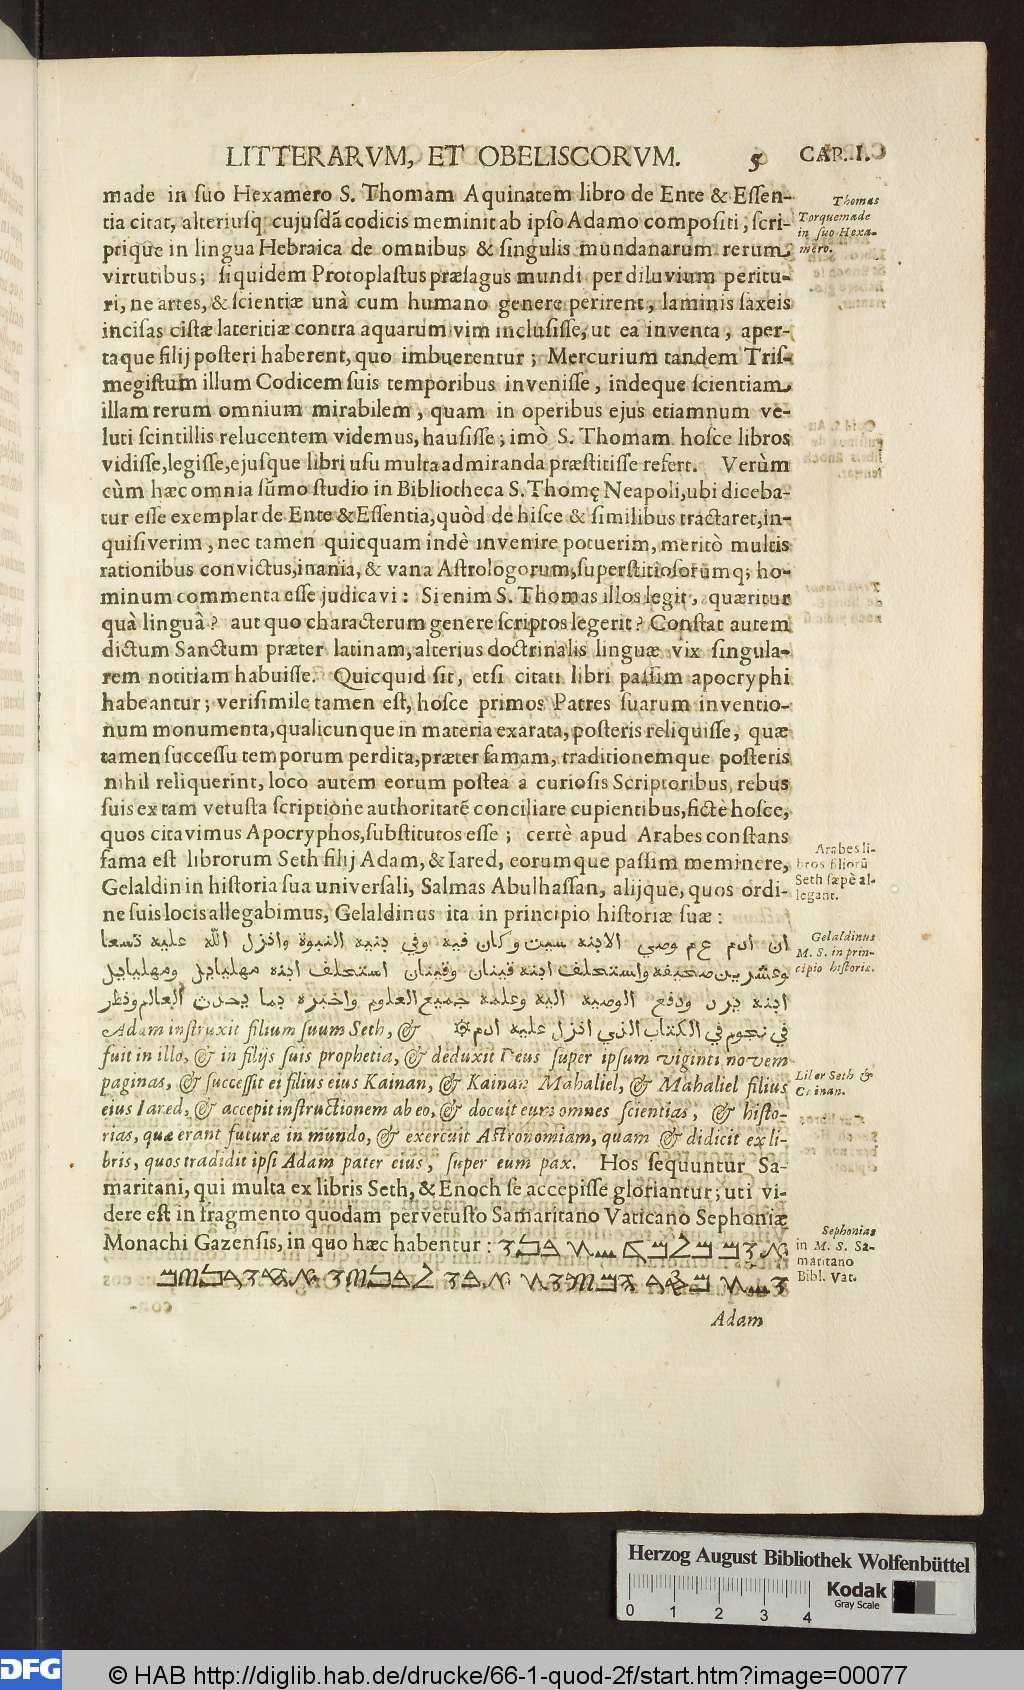 LITTERARVM, ET OBELISCORVM. 5 CAP. I.
made in suo Hexamero S. Thomam Aquinatem libro de Ente & Essen-
tia citat, alteriusq cujusdā codicis meminit ab ipso Adamo compositi, scri-
ptique in lingua Hebraica de omnibus & singulis mundanarum rerum
virtutibus; siquidem Protoplastus præsagus mundi per diluvium peritu-
ri, ne artes, & scientiæ unà cum humano genere perirent, laminis saxeis
incisas cistæ lateritiæ contra aquarum vim inclusisse, ut ea inventa, aper-
taque filij posteri haberent, quo imbuerentur; Mercurium tandem Tris-
megistum illum Codicem suis temporibus invenisse, indeque scientiam
illam rerum omnium mirabilem, quam in operibus ejus etiamnum ve-
luti scintillis relucentem videmus, hausisse; imò S. Thomam hosce libros
vidisse, legisse, ejusque libri usu multa admiranda præstitisse refert. Verùm
cùm hæc omnia sūmo studio in Bibliotheca S. Thomę Neapoli, ubi diceba-
tur esse exemplar de Ente & Essentia, quòd de hisce & similibus tractaret, in-
quisiverim, nec tamen quicquam indè invenire potuerim, meritò multis
rationibus convictus, inania, & vana Astrologorum, superstitiosorumq; ho-
minum commenta esse judicavi: Si enim S. Thomas illos legit, quæritur
quà linguâ? aut quo characterum genere scriptos legerit? Constat autem
dictum Sanctum præter latinam, alterius doctrinalis linguæ vix singula-
rem notitiam habuisse. Quicquid sit, etsi citati libri passim apocryphi
habeantur; verisimile tamen est, hosce primos Patres suarum inventio-
num monumenta, qualicunque in materia exarata, posteris reliquisse, quæ
tamen successu temporum perdita, præter famam, traditionemque posteris
nihil reliquerint, loco autem eorum postea à curiosis Scriptoribus, rebus
suis ex tam vetusta scriptione authoritatē conciliare cupientibus, fictè hosce,
quos citavimus Apocryphos, substitutos esse; certè apud Arabes constans
fama est librorum Seth filij Adam, & Iared, eorumque passim meminere,
Gelaldin in historia sua universali, Salmas Abulhassan, alijque, quos ordi-
ne suis locis allegabimus, Gelaldinus ita in principio historiæ suæ:
ان ادم ع م وصي الابنه سيت وكان فيه وفي بنيه النبوة وانزل الله عليه تسعا
وعشرين صحيفه واستخلف ابنه قينان وقينان استخلف ابنه مهليايل ومهليايل
ابنه يرد ودفع الوصيه اليه وعلمه جميع العلوم واخبره بما يحدث العالم ونظر
في نجوم في الكتاب الذي انزل عليه ادم Adam instruxit filium suum Seth, &
fuit in illo, & in filijs suis prophetia, & deduxit Deus super ipsum viginti novem
paginas, & successit ei filius eius Kainan, & Kainan Mahaliel, & Mahaliel filius
eius Iared, & accepit instructionem ab eo, & docuit eum omnes scientias, & histo-
rias, quæ erant futuræ in mundo, & exercuit Astronomiam, quam & didicit ex li-
bris, quos tradidit ipsi Adam pater eius, super eum pax. Hos sequuntur Sa-
maritani, qui multa ex libris Seth, & Enoch se accepisse gloriantur; uti vi-
dere est in fragmento quodam pervetusto Samaritano Vaticano Sephoniæ
Monachi Gazensis, in quo hæc habentur:
Adam
Thomas
Torquemade
in suo Hexa-
mero.
Arabes li-
bros filiorū
Seth sæpè al-
legant.
Gelaldinus
M. S. in prin-
cipio historiæ.
Liber Seth &
Cainan.
Sephonias
in M. S. Sa-
maritano
Bibl. Vat.
Herzog August Bibliothek Wolfenbüttel
Kodak
Gray Scale
0 1 2 3 4
DFG
© HAB http://diglib.hab.de/drucke/66-1-quod-2f/start.htm?image=00077